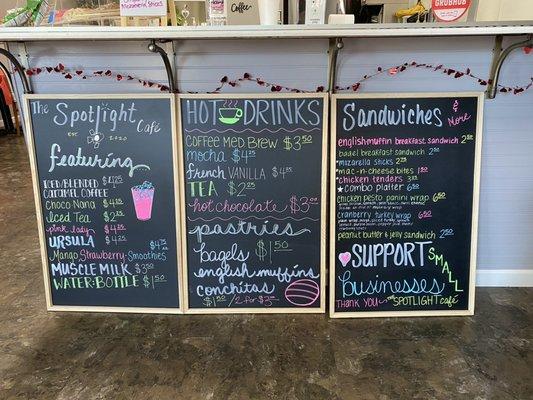 Coffee
GRUBHUB
The Spotlight Café
EST. 2020
featuring
ICED/BLENDED CARAMEL COFFEE $4.25
Choco Nana $4.25
Iced Tea $2
pink Lady $4.25
URSULA $4.25
Mango Strawberry Smoothies $4.75
MUSCLE MILK $3.50
WATER BOTTLE $1.50
HOT DRINKS
COFFEE MED Brew $3.50
mocha $4.25
french VANILLA $4.25
TEA $2.25
hot chocolate $3.00
pastries
bagels $1.50
english muffins
conchitas
$1.50 / 2 for $3.00
SANDWICHES & More
english muffin breakfast sandwich 2.50
bagel breakfast sandwich 2.50
mozarella sticks
mac-n-cheese bites
chicken tenders
combo platter 6.50
chicken pesto panini wrap 6.50
cranberry turkey wrap 6.50
peanut butter & jelly sandwich
SUPPORT SMALL
Businesses
THANK YOU SPOTLIGHT CAFE